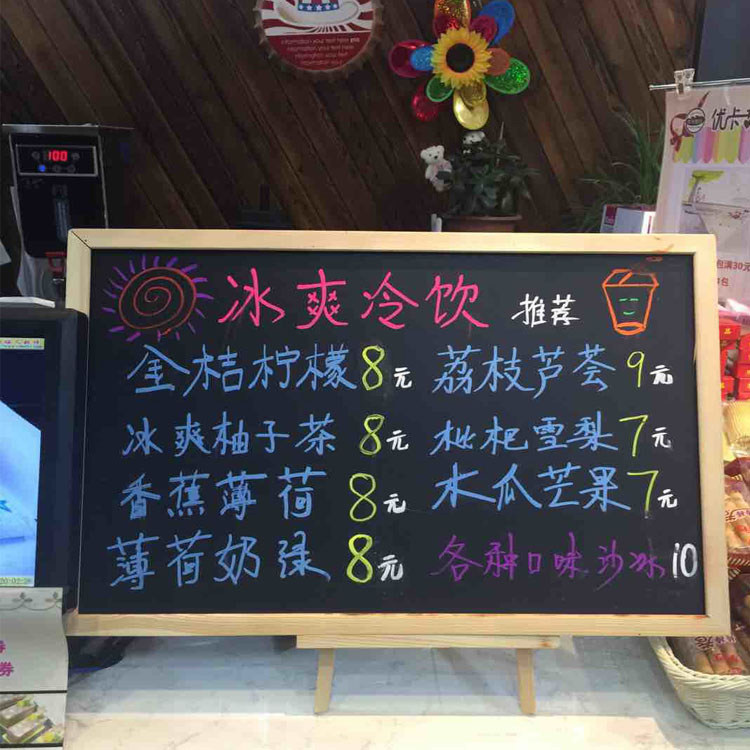 100
优卡
冰爽冷饮 推荐
金桔柠檬8元
荔枝芦荟9元
冰爽柚子茶8元
枇杷雪梨7元
香蕉薄荷8元
木瓜芒果7元
薄荷奶绿8元
各种口味沙冰10
包满30元
20:02:28
券